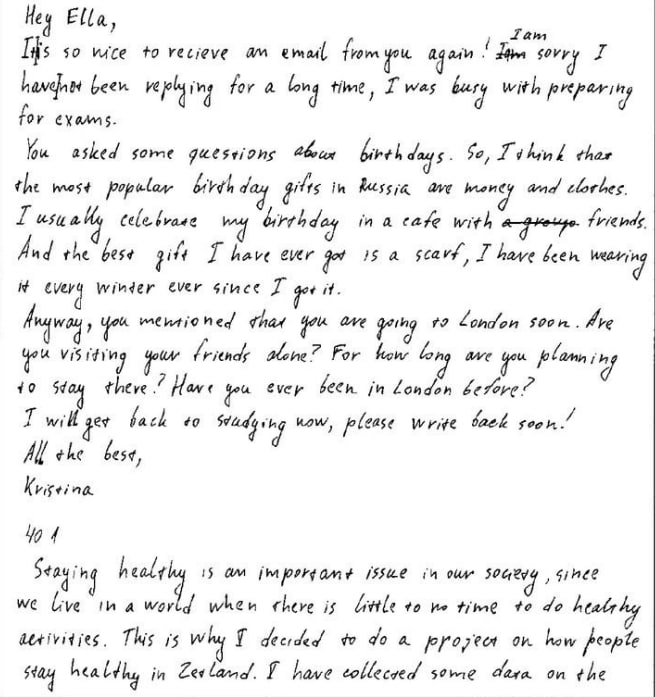 Hey Ella,
It's so nice to recieve an email from you again! I am sorry I
have not been replying for a long time, I was busy with preparing
for exams.
You asked some questions about birthdays. So, I think that
the most popular birthday gifts in Russia are money and clothes.
I usually celebrate my birthday in a cafe with friends.
And the best gift I have ever got is a scarf, I have been wearing
it every winter ever since I got it.
Anyway, you mentioned that you are going to London soon. Are
you visiting your friends alone? For how long are you planning
to stay there? Have you ever been in London before?
I will get back to studying now, please write back soon!
All the best,
Kristina
40 1
Staying healthy is an important issue in our society, since
we live in a world when there is little to no time to do healthy
activities. This is why I decided to do a project on how people
stay healthy in Zetland. I have collected some data on the